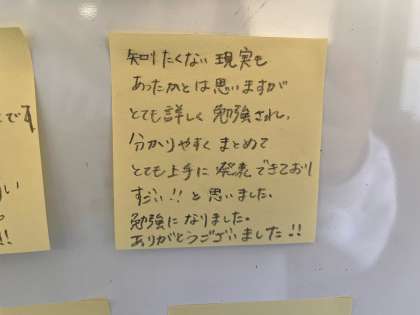 知りたくない現実も
あったかとは思いますが
とても詳しく勉強され、
分かりやすくまとめて
とても上手に発表できており
すごい!!と思いました。
勉強になりました。
ありがとうございました!!
です
い
!!